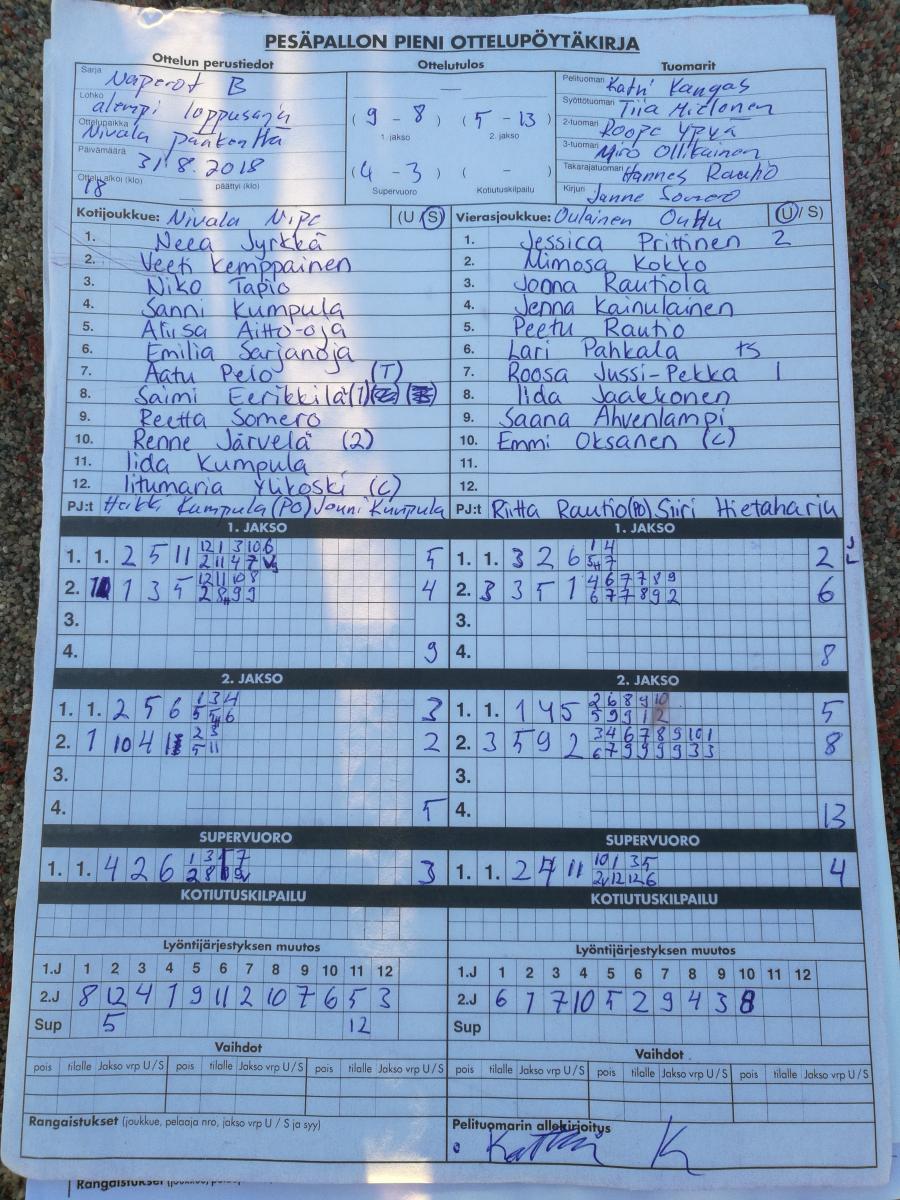 PESÄPALLON PIENI OTTELUPÖYTÄKIRJA
Ottelun perustiedot Ottelutulos Tuomarit
Sarja Naperot B
Lohko alempi loppusarja
Ottelupaikka Nivala pääkenttä
Päivämäärä 31.8.2018
Ottelu alkoi (klo) 18 päättyi (klo)
(9 - 8) (5 - 13)
1. jakso 2. jakso
(4 - 3) ( - )
Supervuoro Kotiutuskilpailu
Pelituomari Katri Kangas
Syöttötuomari Tiia Hietonen
2-tuomari Roope Ypyä
3-tuomari Miro Ollikainen
Takarajatuomari Hannes Rautio
Kirjuri Janne Somero
Kotijoukkue: Nivala NiPe (U S)
1. Neea Jyrkkä
2. Veeti Kemppainen
3. Niko Tapio
4. Sanni Kumpula
5. Aliisa Aitto-oja
6. Emilia Sarjanoja
7. Aatu Pelo (T)
8. Saimi Eerikkilä (1)
9. Reetta Somero
10. Renne Järvelä (2)
11. Iida Kumpula
12. Iitumaria Ylikoski (c)
PJ:t Heikki Kumpula (PO) Jouni Kumpula
Vierasjoukkue: Oulainen OuHu (U / S)
1. Jessica Prittinen 2
2. Mimosa Kokko
3. Jonna Rautiola
4. Jenna Kainulainen
5. Peetu Rautio
6. Lari Pahkala ts
7. Roosa Jussi-Pekka 1
8. Iida Jaakkonen
9. Saana Ahvenlampi
10. Emmi Oksanen (c)
11.
12.
PJ:t Riitta Rautio (PO) Siiri Hietaharju
1. JAKSO 1. JAKSO
1. 1. 2 5 11 12 1 3 10 6 5
2 11 4 7
2. 1 3 5 12 11 10 8 4
2 8H 9 9
3.
4. 9
1. 1. 3 2 6 1 4 2
5H 7
2. 3 3 5 1 4 6 7 7 8 9 6
6 7 7 8 9 2
3.
4. 8
2. JAKSO 2. JAKSO
1. 1. 2 5 6 1 3 4 3
5 5H 6
2. 1 10 4 2 3 2
5 11
3.
4. 5
1. 1. 1 4 5 2 6 8 9 10 5
5 9 9 1 2
2. 3 5 9 2 3 4 6 7 8 9 10 1 8
6 7 9 9 9 9 3 3
3.
4. 13
SUPERVUORO SUPERVUORO
1. 1. 4 2 6 1 3 7 3
2 8 9v
1. 1. 2 7 11 10 1 3 5 4
2v 12 12 6
KOTIUTUSKILPAILU KOTIUTUSKILPAILU
Lyöntijärjestyksen muutos
1.J 1 2 3 4 5 6 7 8 9 10 11 12
2.J 8 12 4 1 9 11 2 10 7 6 5 3
Sup 5 12
Lyöntijärjestyksen muutos
1.J 1 2 3 4 5 6 7 8 9 10 11 12
2.J 6 1 7 10 5 2 9 4 3 8
Sup
Vaihdot Vaihdot
pois tilalle Jakso vrp U / S pois tilalle Jakso vrp U / S pois tilalle Jakso vrp U / S
pois tilalle Jakso vrp U / S pois tilalle Jakso vrp U / S pois tilalle Jakso vrp U / S
Rangaistukset (joukkue, pelaaja nro, jakso vrp U / S ja syy)
Pelituomarin allekirjoitys
Rangaistukset